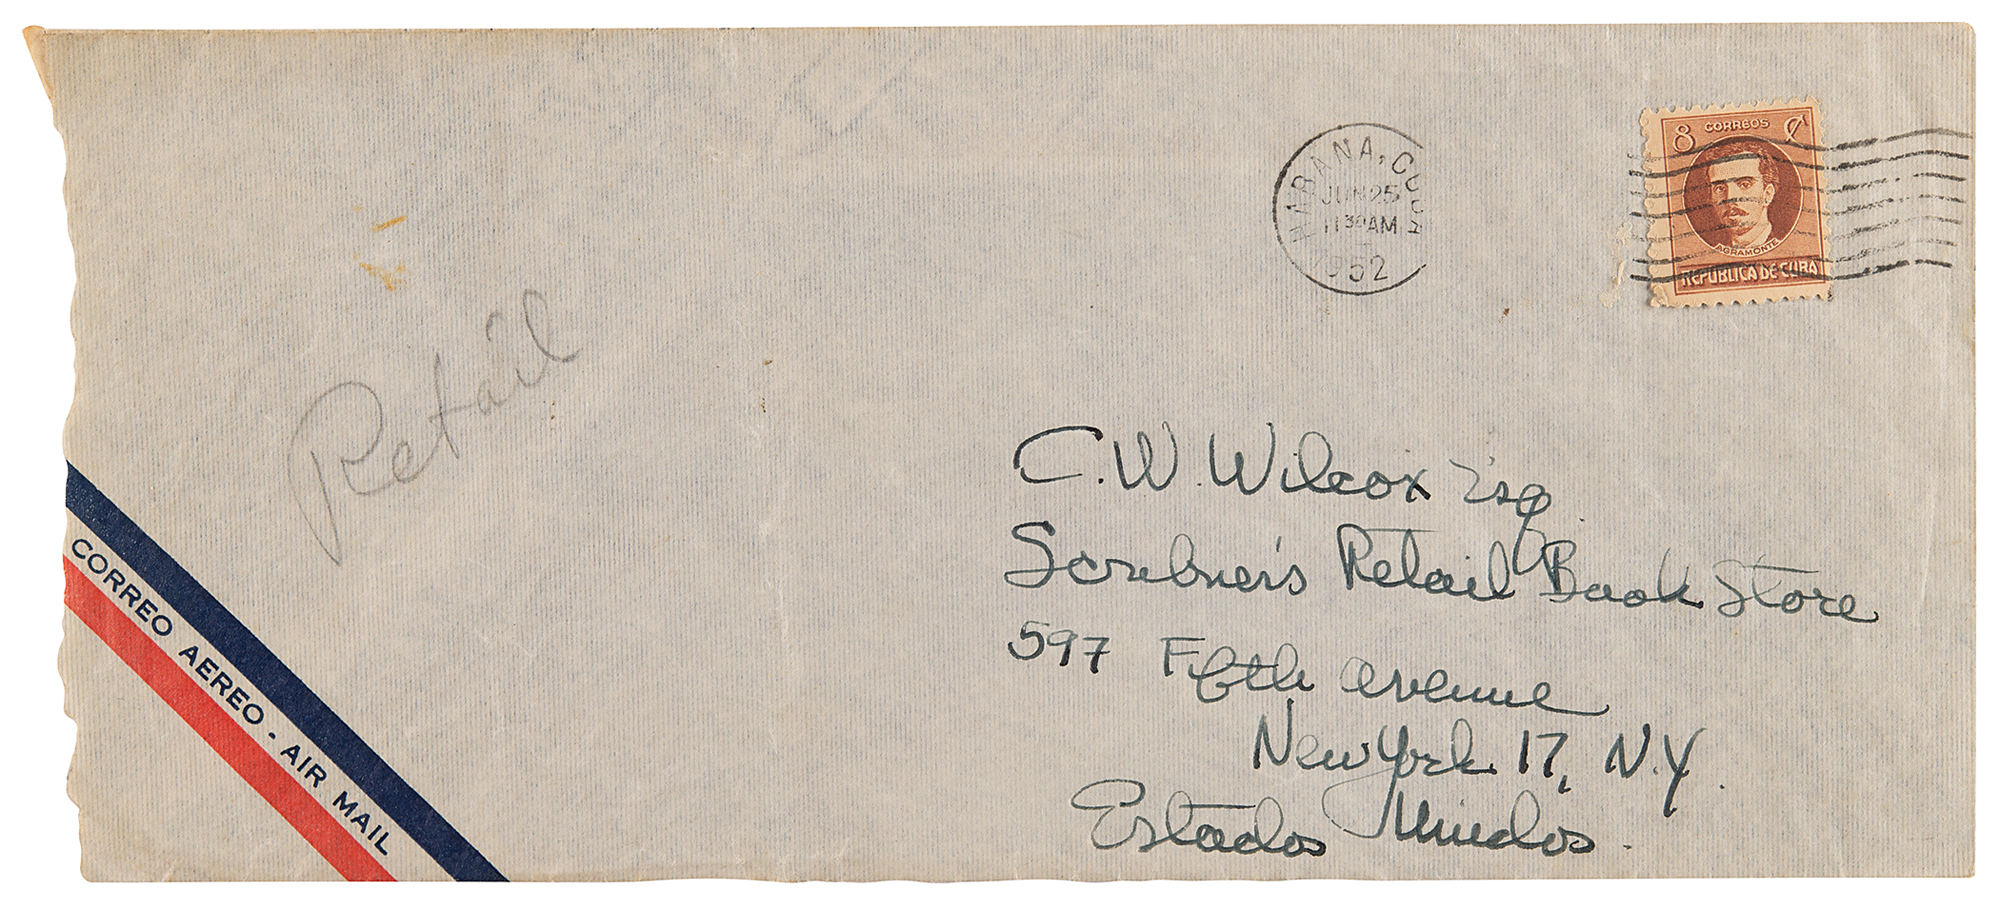 HABANA, CUBA
JUN 25
11 30 AM
1952
8 CORREOS ¢
AGRAMONTE
REPUBLICA DE CUBA
Retail
C.W. Wilcox Esq.
Scribner's Retail Book Store
597 Fifth Avenue
New York 17, N.Y.
Estados Unidos.
CORREO AEREO - AIR MAIL